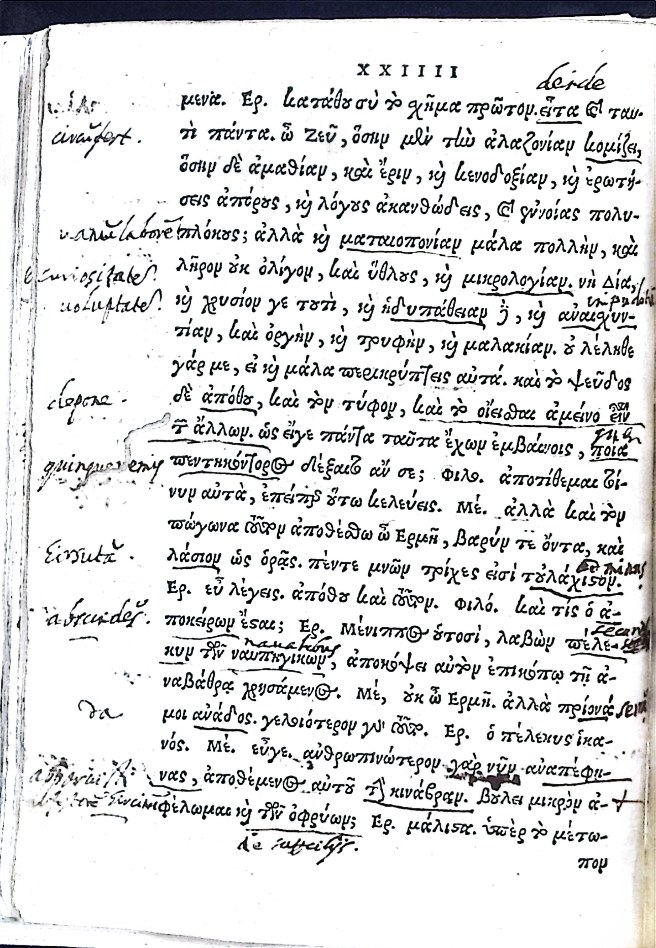 XXIIII
deinde
μενα. Ερ. κατάθου σὺ τὸ χῆμα πρῶτον. εἶτα καὶ ταυ-
circūfert.
τὶ πάντα. ὦ Ζεῦ, ὅσην μὲν τὴν ἀλαζονίαν κομίζει,
ὅσην δὲ ἀμαθίαν, καὶ ἔριν, καὶ κενοδοξίαν, καὶ ἐρωτή-
σεις ἀπόρους, καὶ λόγους ἀκανθώδεις, καὶ ἐννοίας πολυ-
vanū laborē
πλόκους; ἀλλὰ καὶ ματαιοπονίαν μάλα πολλὴν, καὶ
curiositatē.
λῆρον οὐκ ὀλίγον, καὶ ὕθλους, καὶ μικρολογίαν. νὴ Δία,
voluptatē.
καὶ χρυσίον γε τουτὶ, καὶ ἡδυπάθειαν δὲ, καὶ ἀναισχυν-
τίαν, καὶ ὀργὴν, καὶ τρυφὴν, καὶ μαλακίαν. οὐ λέληθε
γάρ με, εἰ καὶ μάλα περικρύπτεις αὐτά. καὶ τὸ ψεῦδος
depone.
δὲ ἀπόθου, καὶ τὸν τύφον, καὶ τὸ οἴεσθαι ἀμείνω εἶναι
τῶν ἄλλων. ὡς εἴγε πάντα ταῦτα ἔχων ἐμβαίνοις, ποία
πεντηκόντορος δέξαιτο ἄν σε; Φιλο. ἀποτίθεμαι τοί-
νυν αὐτὰ, ἐπείπερ οὕτω κελεύεις. Με. ἀλλὰ καὶ τὸν
πώγωνα τοῦτον ἀποθέσθω ὦ Ερμῆ, βαρύν τε ὄντα, καὶ
λάσιον ὡς ὁρᾷς. πέντε μνῶν τρίχες εἰσὶ τοὐλάχιστον.
Ερ. εὖ λέγεις. ἀπόθου καὶ τοῦτον. Φιλό. καὶ τίς ὁ ἀ-
ποκείρων ἔσται; Ερ. Μένιππος οὑτοσὶ, λαβὼν πέλε-
κυν τῶν ναυπηγικῶν, ἀποκόψει αὐτὸν ἐπικόπῳ τῇ ἀ-
ναβάθρᾳ χρησάμενος. Μέ, οὐκ ὦ Ερμῆ. ἀλλὰ πρίονά
da
μοι ἀνάδος. γελοιότερον γὰρ τοῦτο. Ερ. ὁ πέλεκυς ἱκα-
νός. Με. εὖγε. ἀνθρωπινώτερον γὰρ νῦν ἀναπέφη-
νας, ἀποθέμενος αὐτοῦ τὴν κινάβραν. βούλει μικρὸν ἀ-
φέλωμαι καὶ τῶν ὀφρύων; Ερ. μάλιστα. ὑπὲρ τὸ μέτω-
de supercilijs.
πον